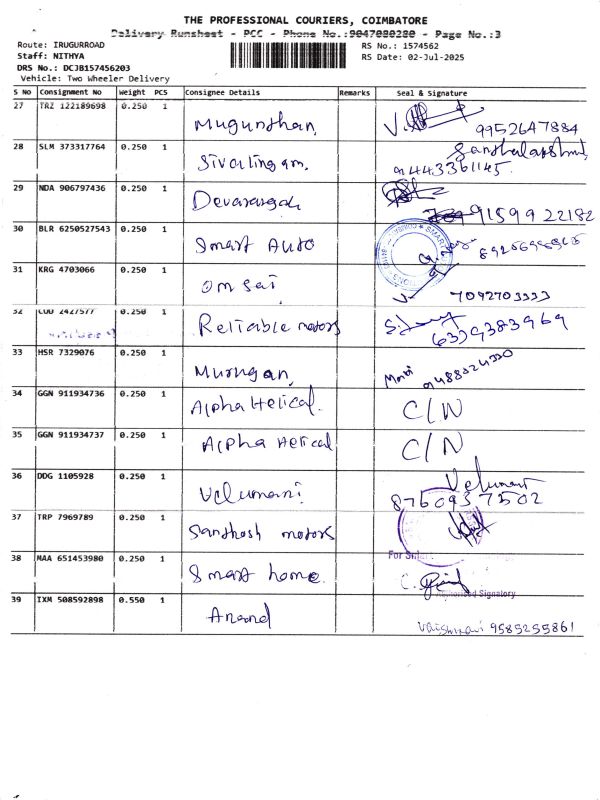 THE PROFESSIONAL COURIERS, COIMBATORE
Delivery Runsheet - PCC - Phone No.:9047080280 - Page No.:3
Route: IRUGURROAD
RS No.: 1574562
Staff: NITHYA
RS Date: 02-Jul-2025
DRS No.: DCJB157456203
Vehicle: Two Wheeler Delivery
S No Consignment No Weight PCS Consignee Details Remarks Seal & Signature
27 TRZ 122189698 0.250 1 Mugunthan. 9952647884
28 SLM 373317764 0.250 1 Sivalingam. Santhalakshmi
9443361145
29 NDA 906797436 0.250 1 Devarangah 9159922182
30 BLR 6250527543 0.250 1 Smart Auto
31 KRG 4703066 0.250 1 Om Sai 7092703333
32 COD 2427577 0.250 1 Reliable motors 6339383969
33 HSR 7329076 0.250 1 Murugan. Mani 9488824330
34 GGN 911934736 0.250 1 Alpha Helical. C/N
35 GGN 911934737 0.250 1 Alpha Helical C/N
36 DDG 1105928 0.250 1 Velumani Velumani
8760937502
37 TRP 7969789 0.250 1 Santhosh motors
For Smart
38 MAA 651453980 0.250 1 Smart home.
Authorised Signatory
39 IXM 508592898 0.550 1 Anand Vaishnavi 9585255861